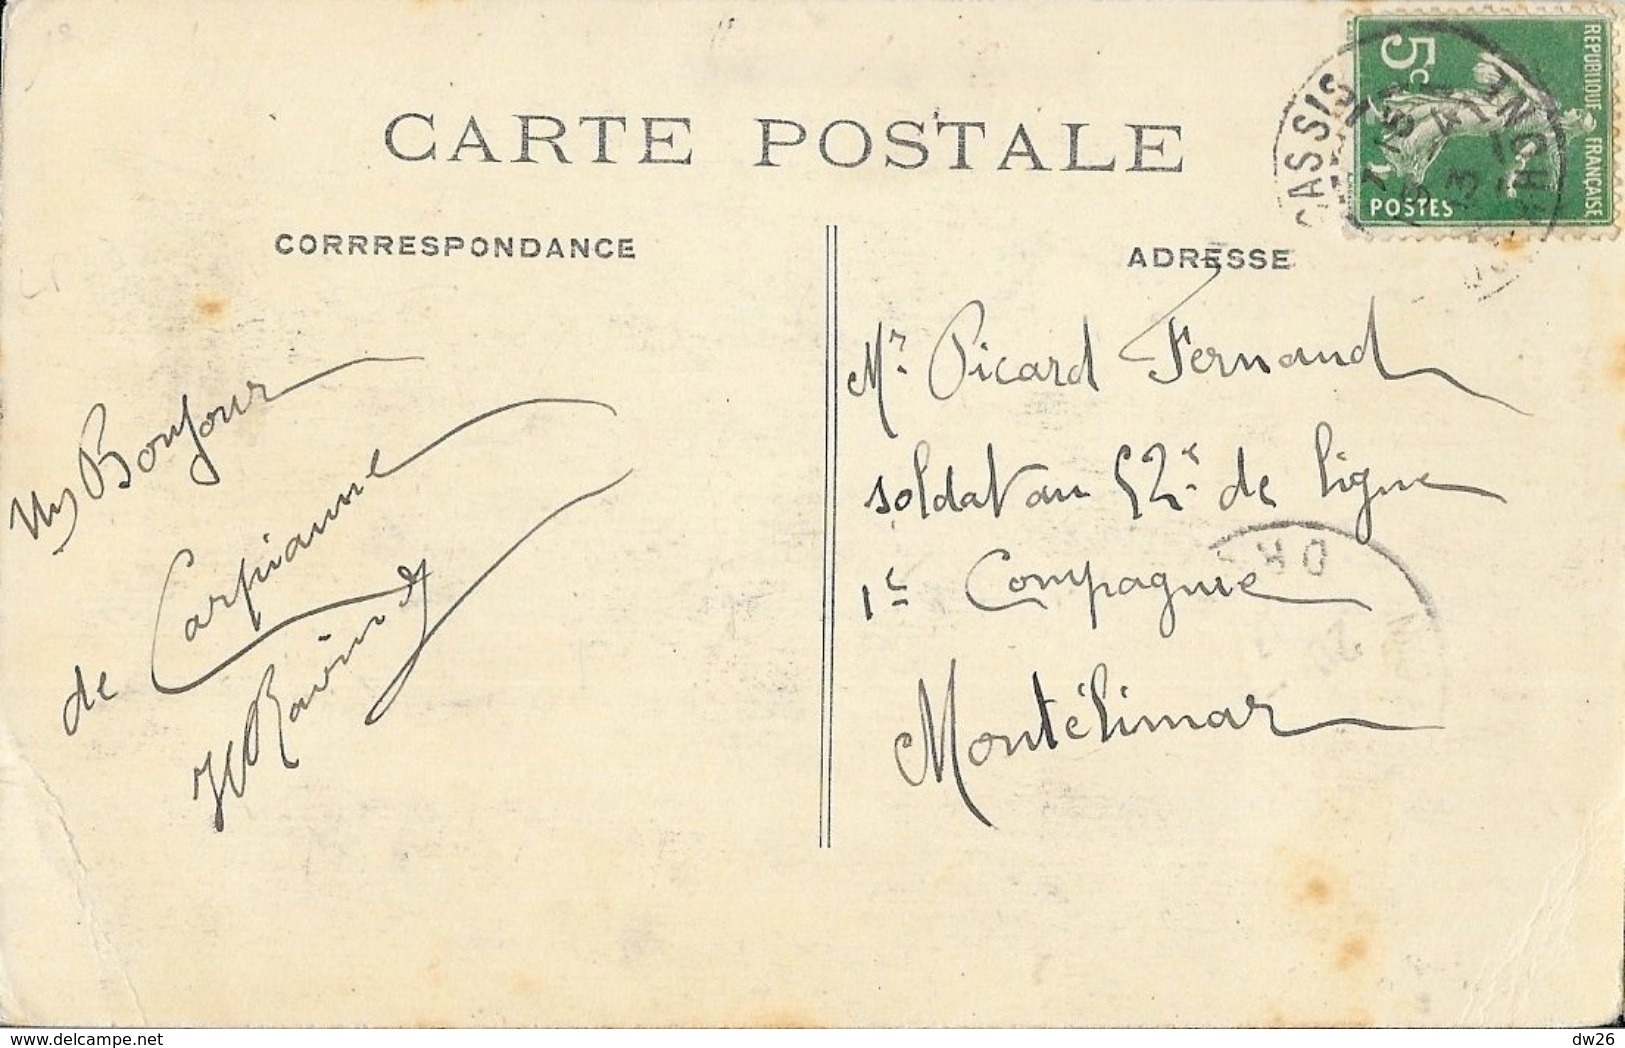 CARTE POSTALE
CORRRESPONDANCE
Un Bonjour
de Carpianne
ADRESSE
Mr. Picard Fernand
soldat au 52e de ligne
1e Compagnie
Montélimar
REPUBLIQUE FRANÇAISE
5c
POSTES
CASSIS
RHONE
DRO
dw26